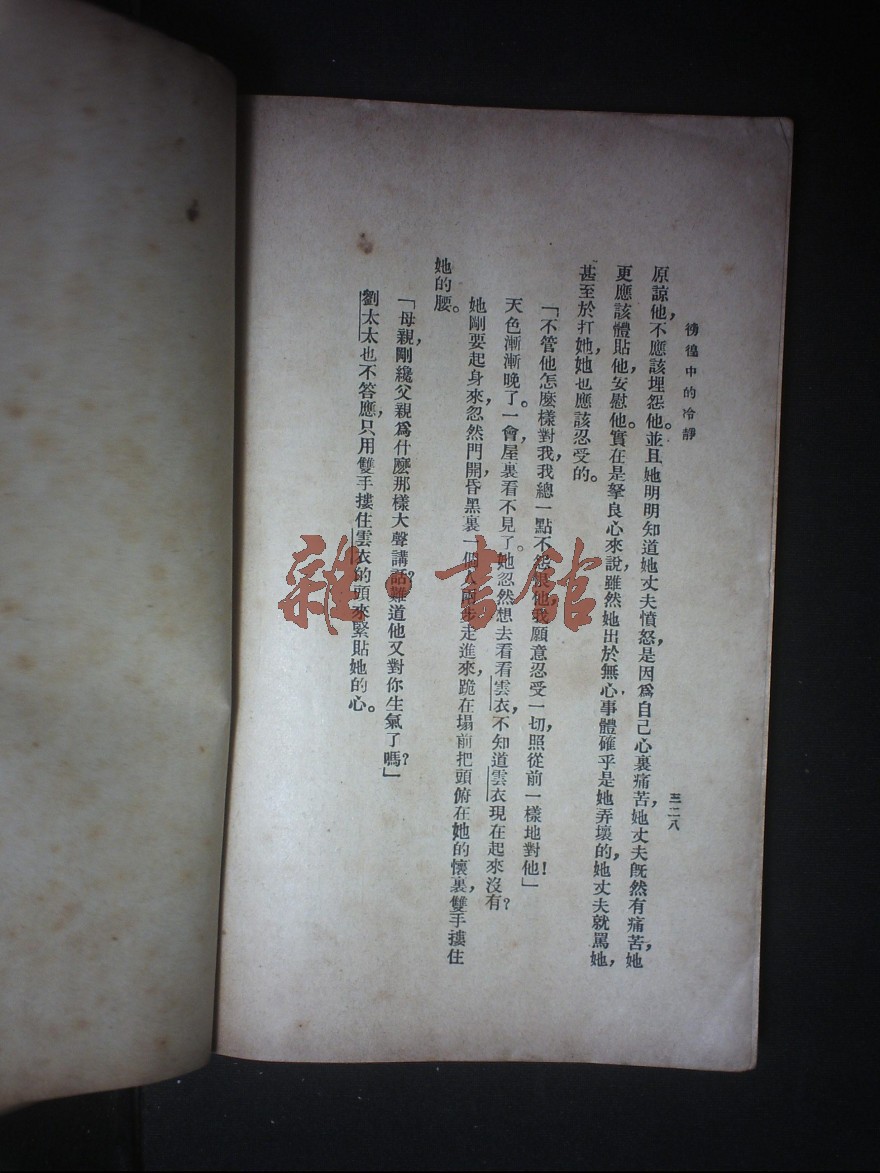 徬徨中的冷靜
三二八
原諒他，不應該埋怨他。並且她明明知道她丈夫憤怒，是因爲自己心裏痛苦，她丈夫旣然有痛苦，她
更應該體貼他，安慰他。實在是拏良心來說，雖然她出於無心，事體確乎是她弄壞的，她丈夫就罵她，
甚至於打她，她也應該忍受的。
「不管他怎麼樣對我，我總一點不怨恨他，我願意忍受一切，照從前一樣地對他！」
天色漸漸晚了。一會屋裏看不見了。她忽然想去看看雲衣，不知道雲衣現在起來沒有？
她剛要起身來，忽然門開，昏黑裏一個人兩步走進來，跪在塌前，把頭俯在她的懷裏，雙手摟住
她的腰。
「母親，剛纔父親爲什麽那樣大聲講話？難道他又對你生氣了嗎？」
劉太太也不答應，只用雙手摟住雲衣的頭來緊貼她的心。
雜·書館